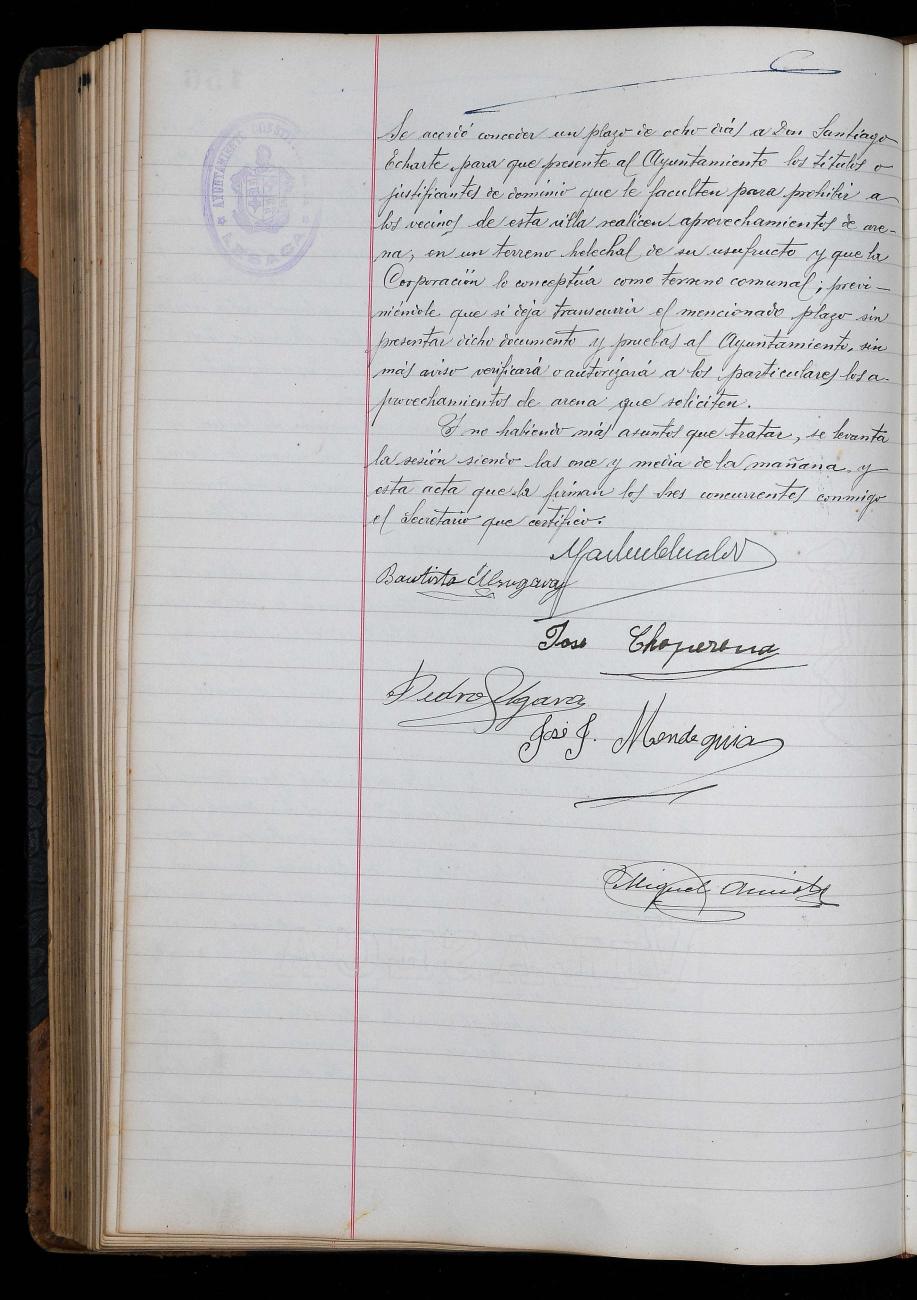 Se acordó conceder un plazo de ocho días a Don Santiago
Echarte para que presente al Ayuntamiento los títulos o
justificantes de dominio que le faculten para prohibir a
los vecinos de esta villa realicen aprovechamientos de are-
na, en un terreno helechal de su usufructo y que la
Corporación lo conceptúa como terreno comunal; previ-
niéndole que si deja transcurrir el mencionado plazo sin
presentar dicho documento y pruebas al Ayuntamiento, sin
más aviso verificará o autorizará a los particulares los a-
provechamientos de arena que soliciten.
Y no habiendo más asuntos que tratar, se levanta
la sesión siendo las once y media de la mañana y
esta acta que la firman los Sres concurrentes conmigo
el Secretario que certifico.
Bautista
José Choperena
Pedro
José J. Mendeguia
Miguel
AYUNTAMIENTO